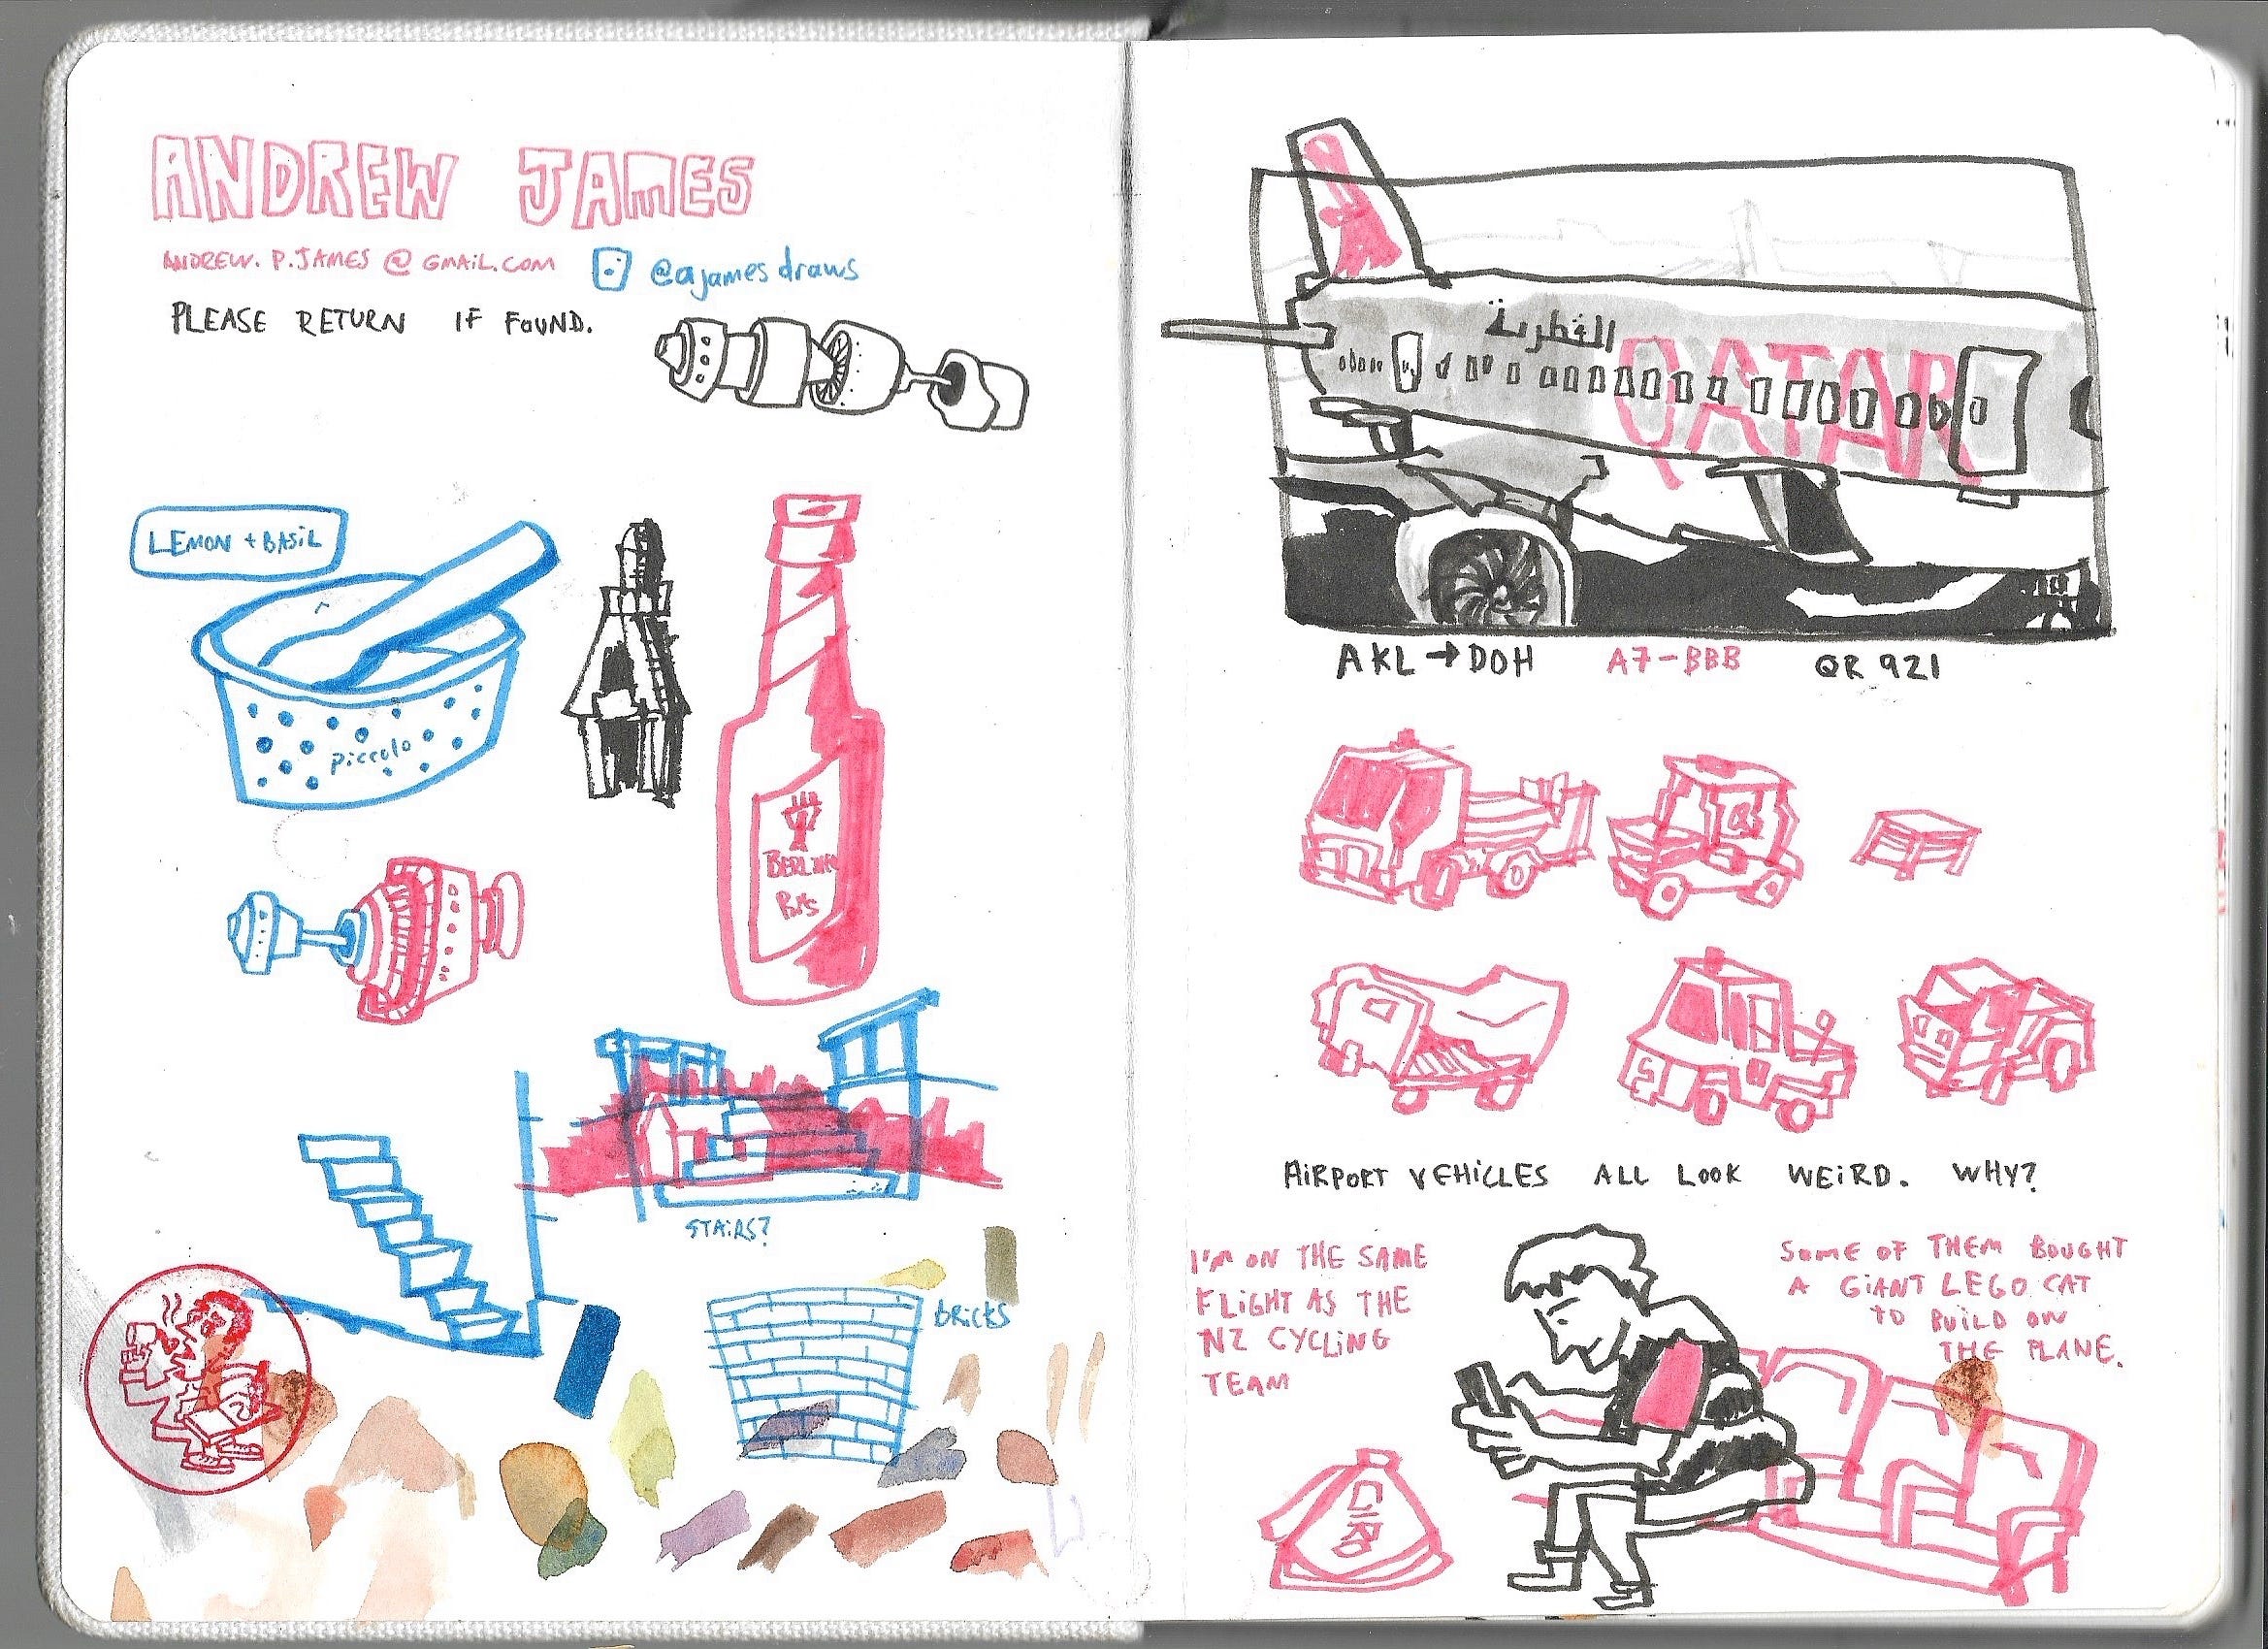 ANDREW JAMES
ANDREW.P.JAMES@GMAIL.COM @ajamesdraws
PLEASE RETURN IF FOUND.
LEMON + BASIL
piccolo
BERLINER
STAIRS?
BRICKS
القطرية
QATAR
AKL → DOH A7-BBB QR 921
AIRPORT VEHICLES ALL LOOK WEIRD. WHY?
I'M ON THE SAME
FLIGHT AS THE
NZ CYCLING
TEAM
SOME OF THEM BOUGHT
A GIANT LEGO CAT
TO BUILD ON
THE PLANE.